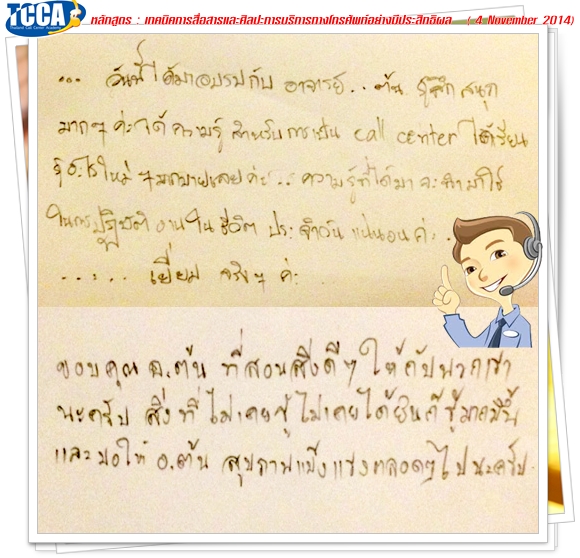 TCCA
Thailand Call Center Academy
หลักสูตร : เทคนิคการสื่อสารและศิลปะการบริการทางโทรศัพท์อย่างมีประสิทธิผล ( 4 November 2014)
... วันนี้ได้มาอบรมกับ อาจารย์...ต้น รู้สึก สนุก
มากๆ ค่ะ ได้ ความรู้ สำหรับ การเป็น call center ได้เรียน
รู้อะไรใหม่ ๆ มากมายเลยค่ะ .. ความรู้ที่ได้มา จะนำมาใช้
ในการปฏิบัติ งาน ใน ชีวิต ประจำวัน แน่นอน ค่ะ .
..... เยี่ยม จริงๆ ค่ะ
ขอบคุณ อ.ต้น ที่สอนสิ่งดีๆ ให้กับพวกเรา
นะครับ สิ่งที่ไม่เคยรู้ ไม่เคยได้ยินก็รู้มากขึ้น
และขอให้ อ.ต้น สุขภาพแข็งแรงตลอดๆไปนะครับ.